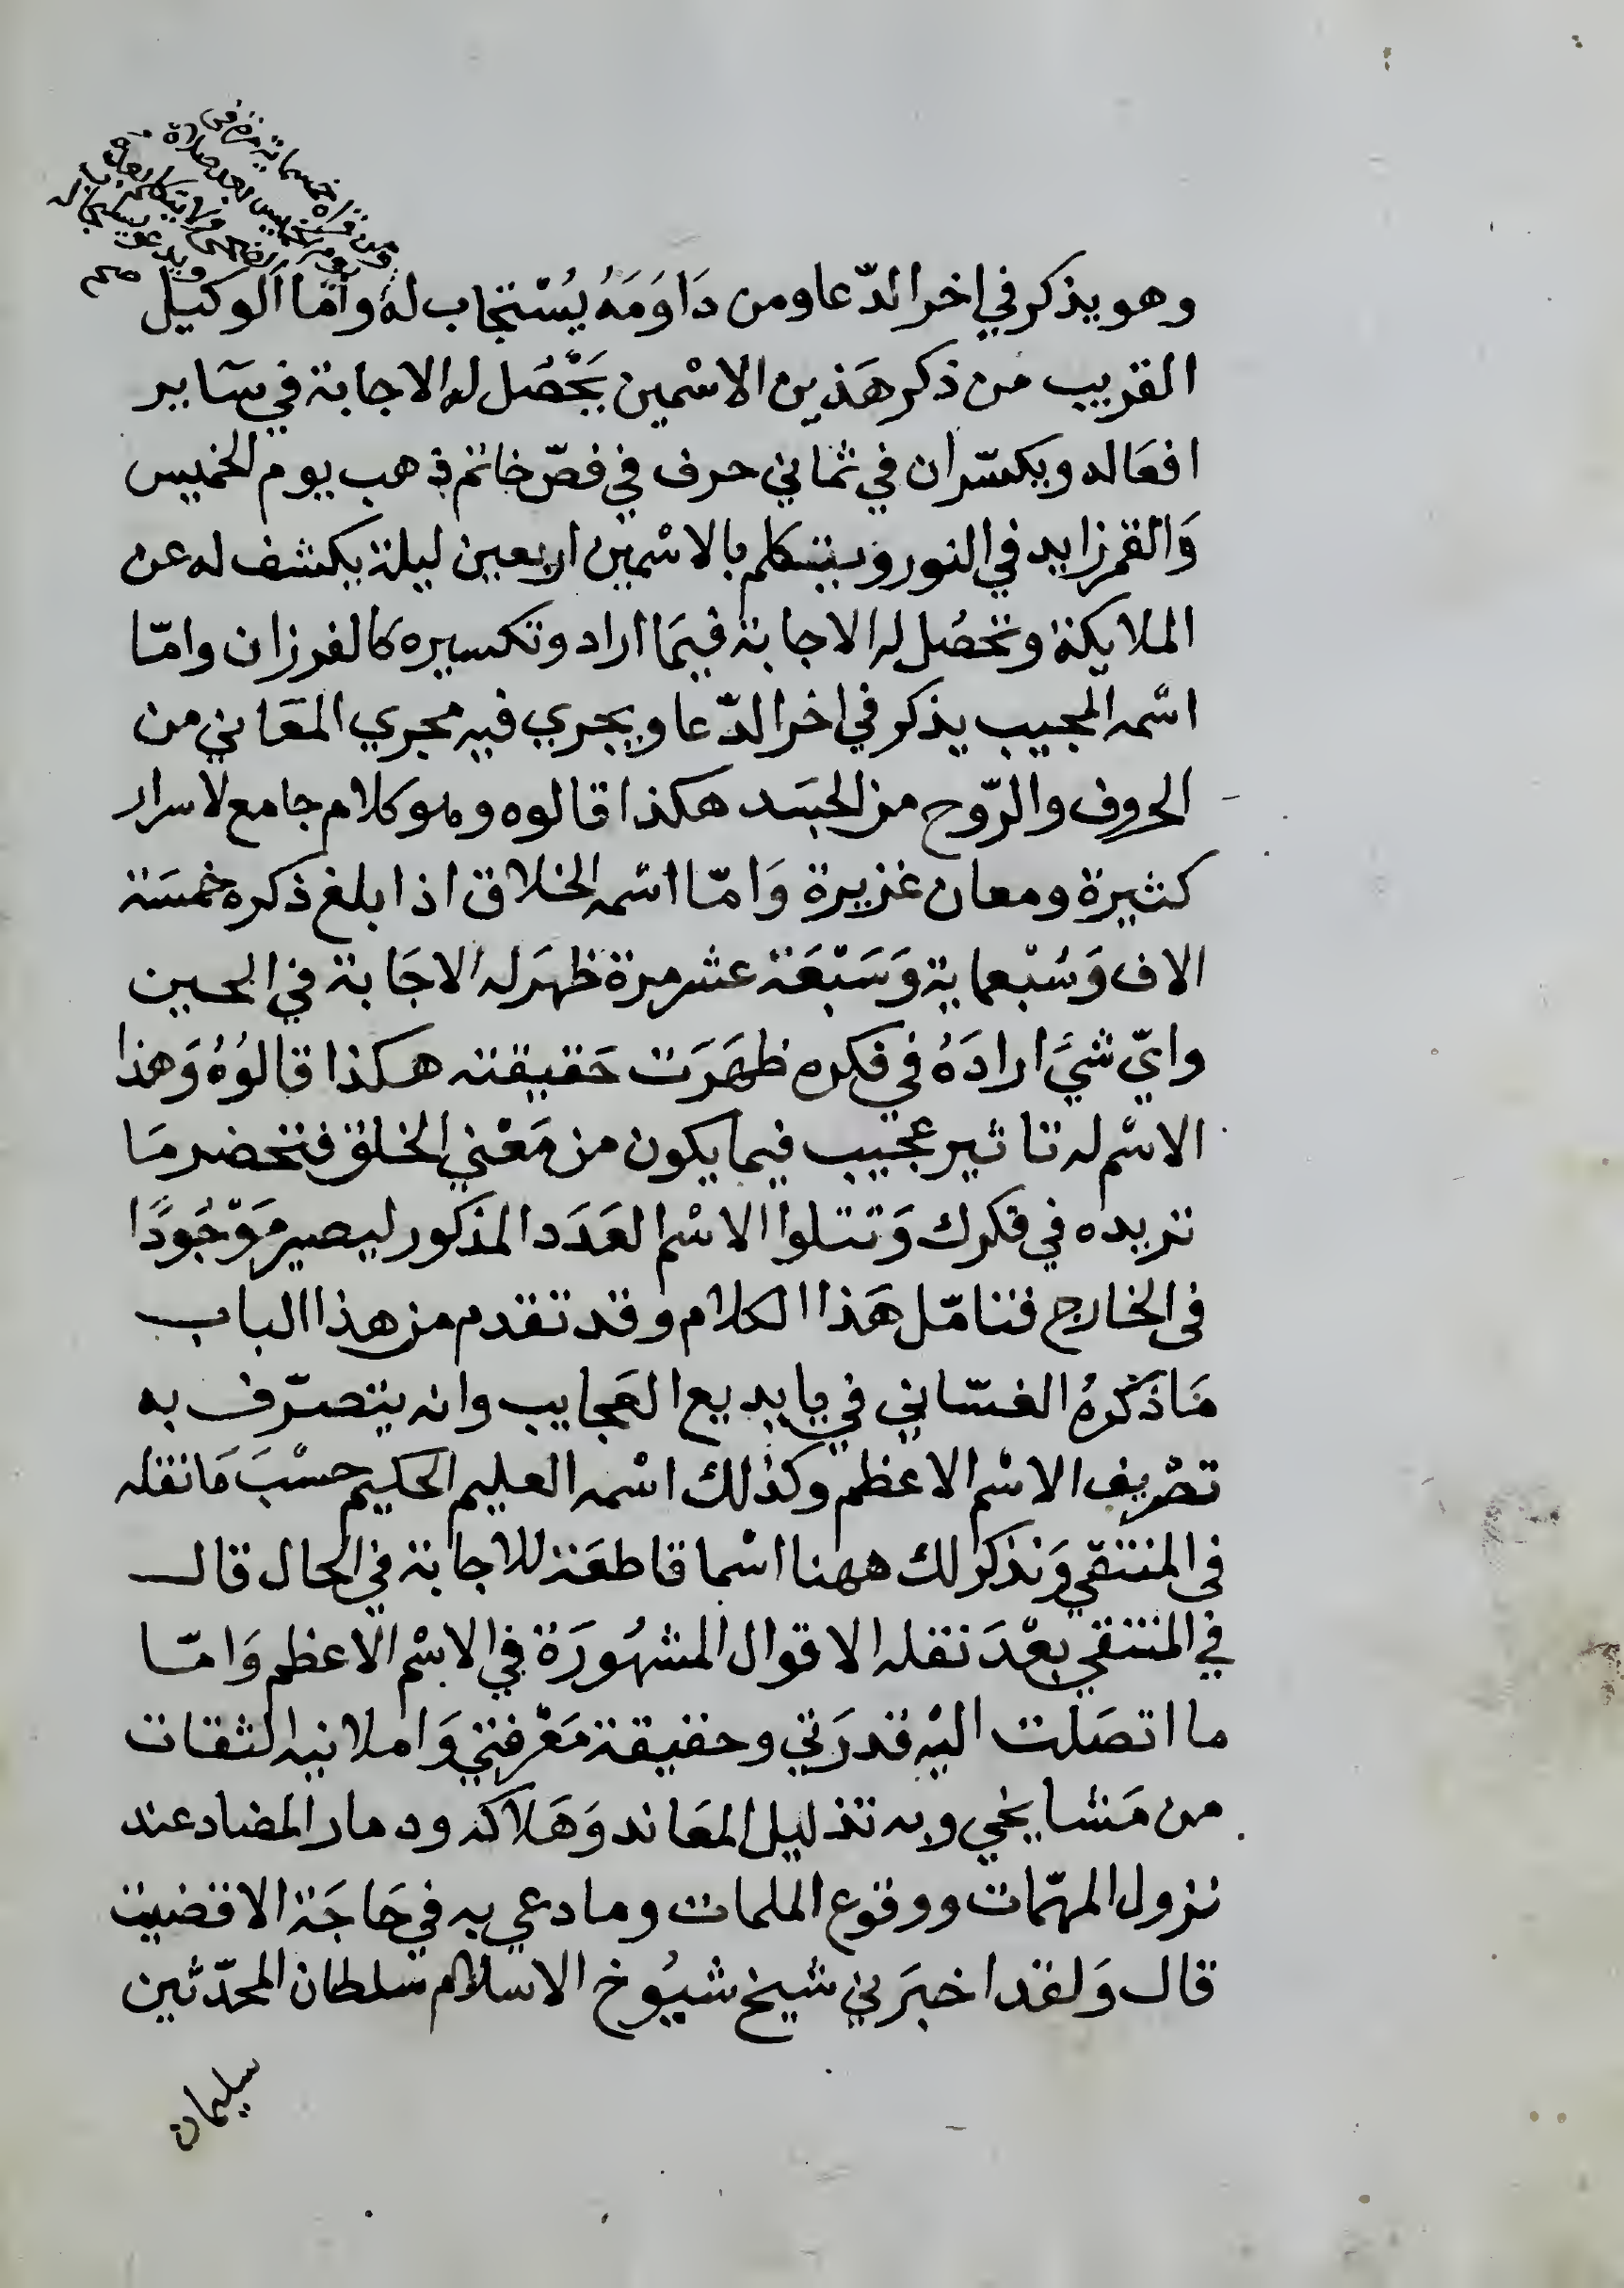 ومن قراه خمسماية مرة في
يوم الخميس بعد صلاة
الضحى ولا يتكلم
ويدعو يستجاب له
صح
وهو يذكر في اخر الدّعا ومن دَاوَمَهُ يُسْتجاب لهُ وأمّا الوكيل
القريب من ذكر هَذين الاسْمين يَحْصُل له الاجابة في سَاير
افعَاله ويكسّران في ثماني حرف في فصّ خاتم ذهب يوم الخميس
وَالقمر زايد في النور ويتكلم بالاسْمين اربعين ليلة يكشف له عن
الملايكة وتحصُل له الاجابة فيمَا اراد وتكسيره كالفرزان وامّا
اسْمه المجيب يذكر في اخر الدّعا ويجري فيه مجري المعَاني من
الحروف والرّوح من الجسَد هكذا قالوه وهو كلام جامع لاسرار
كثيرة ومعان غزيرة وَامّا اسْمه الخلاق اذا بلغ ذكره خمسَة
الاف وَسُبْعماية وَسَبْعَة عشر مرة ظهَر له الاجَابة في الحين
وايّ شيَ ارادَهُ في فكره ظهَرَت حَقيقته هكذا قالوُهُ وَهذا
الاسْم له تاثير عجيب فيما يكون من مَعْني الخلق فتحضر مَا
تريده في فكرك وَتتلوا الاسْم العَدَد المذكور ليصير مَوْجُودًا
في الخارج فتامّل هَذا الكلام وقد تقدم من هذا الباب
مَا ذكرهُ الغسّاني في يا بديع العَجايب وانه يتصرّف به
تصْريف الاسْم الاعظم وكذلك اسْمه العليم الحكيم حسْبَ مَا نقله
في المنتقي وَنذكر لك ههنا اسْما قاطعَة للاجابة في الحال قال
في المنتقي بعْدَ نقله الاقوال المشهُورَة في الاسْم الاعظم وَامّا
ما اتصَلت اليْه قدرَتي وحقيقة مَعْرفتي وَاملانيه الثقات
من مَشايخي وبه تذليل المعَاند وَهَلاكه ودمار المضاد عند
نزول المهمّات ووقوع الملمات وما دعي به في حَاجَة الا قضيت
قال وَلقد اخبَرني شيخ شيُوخ الاسلام سلطان المحدّثين
سليمان